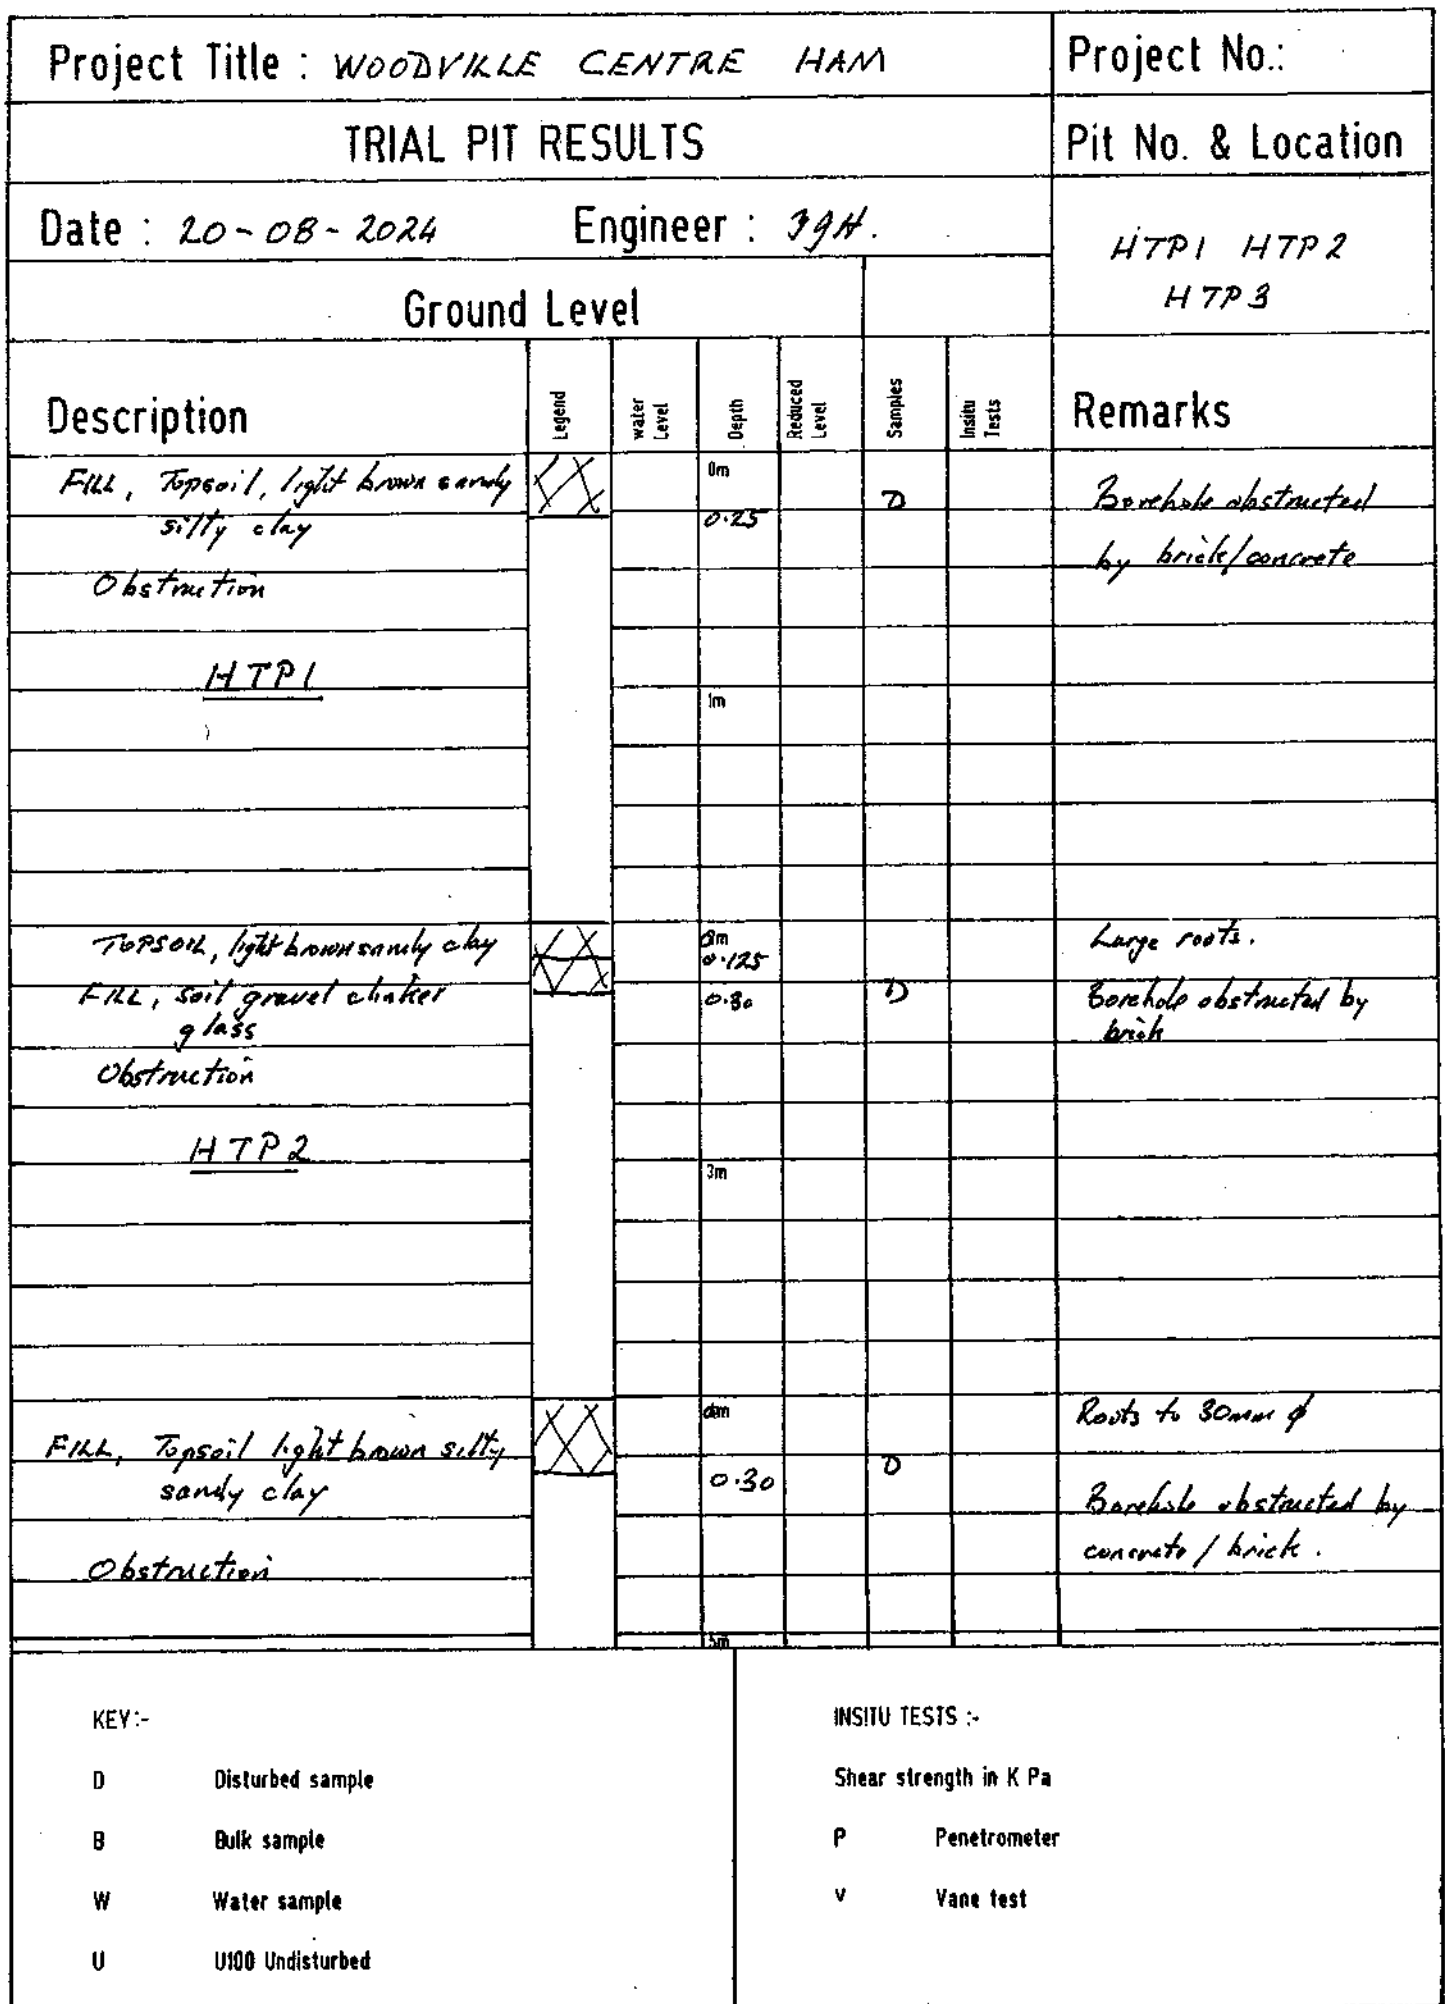 Project Title : WOODVILLE CENTRE HAM
Project No.:
TRIAL PIT RESULTS
Pit No. & Location
Date : 20-08-2024 Engineer :
HTP1 HTP2
HTP3
Ground Level
Description Legend water Level Depth Reduced Level Samples Insitu Tests Remarks
0m
FILL, Topsoil, light brown sandy D Borehole obstructed
silty clay 0.25
by brick/concrete
Obstruction
HTP1
1m
TOPSOIL, light brown sandy clay 0.125 Large roots.
FILL, soil gravel clinker 0.30 D Borehole obstructed by
glass brick
Obstruction
HTP2
3m
Roots to 30mm ϕ
FILL, Topsoil light brown silty D
sandy clay 0.30 Borehole obstructed by
concrete / brick.
Obstruction
5m
KEY:-
D Disturbed sample
B Bulk sample
W Water sample
U U100 Undisturbed
INSITU TESTS :-
Shear strength in K Pa
P Penetrometer
V Vane test